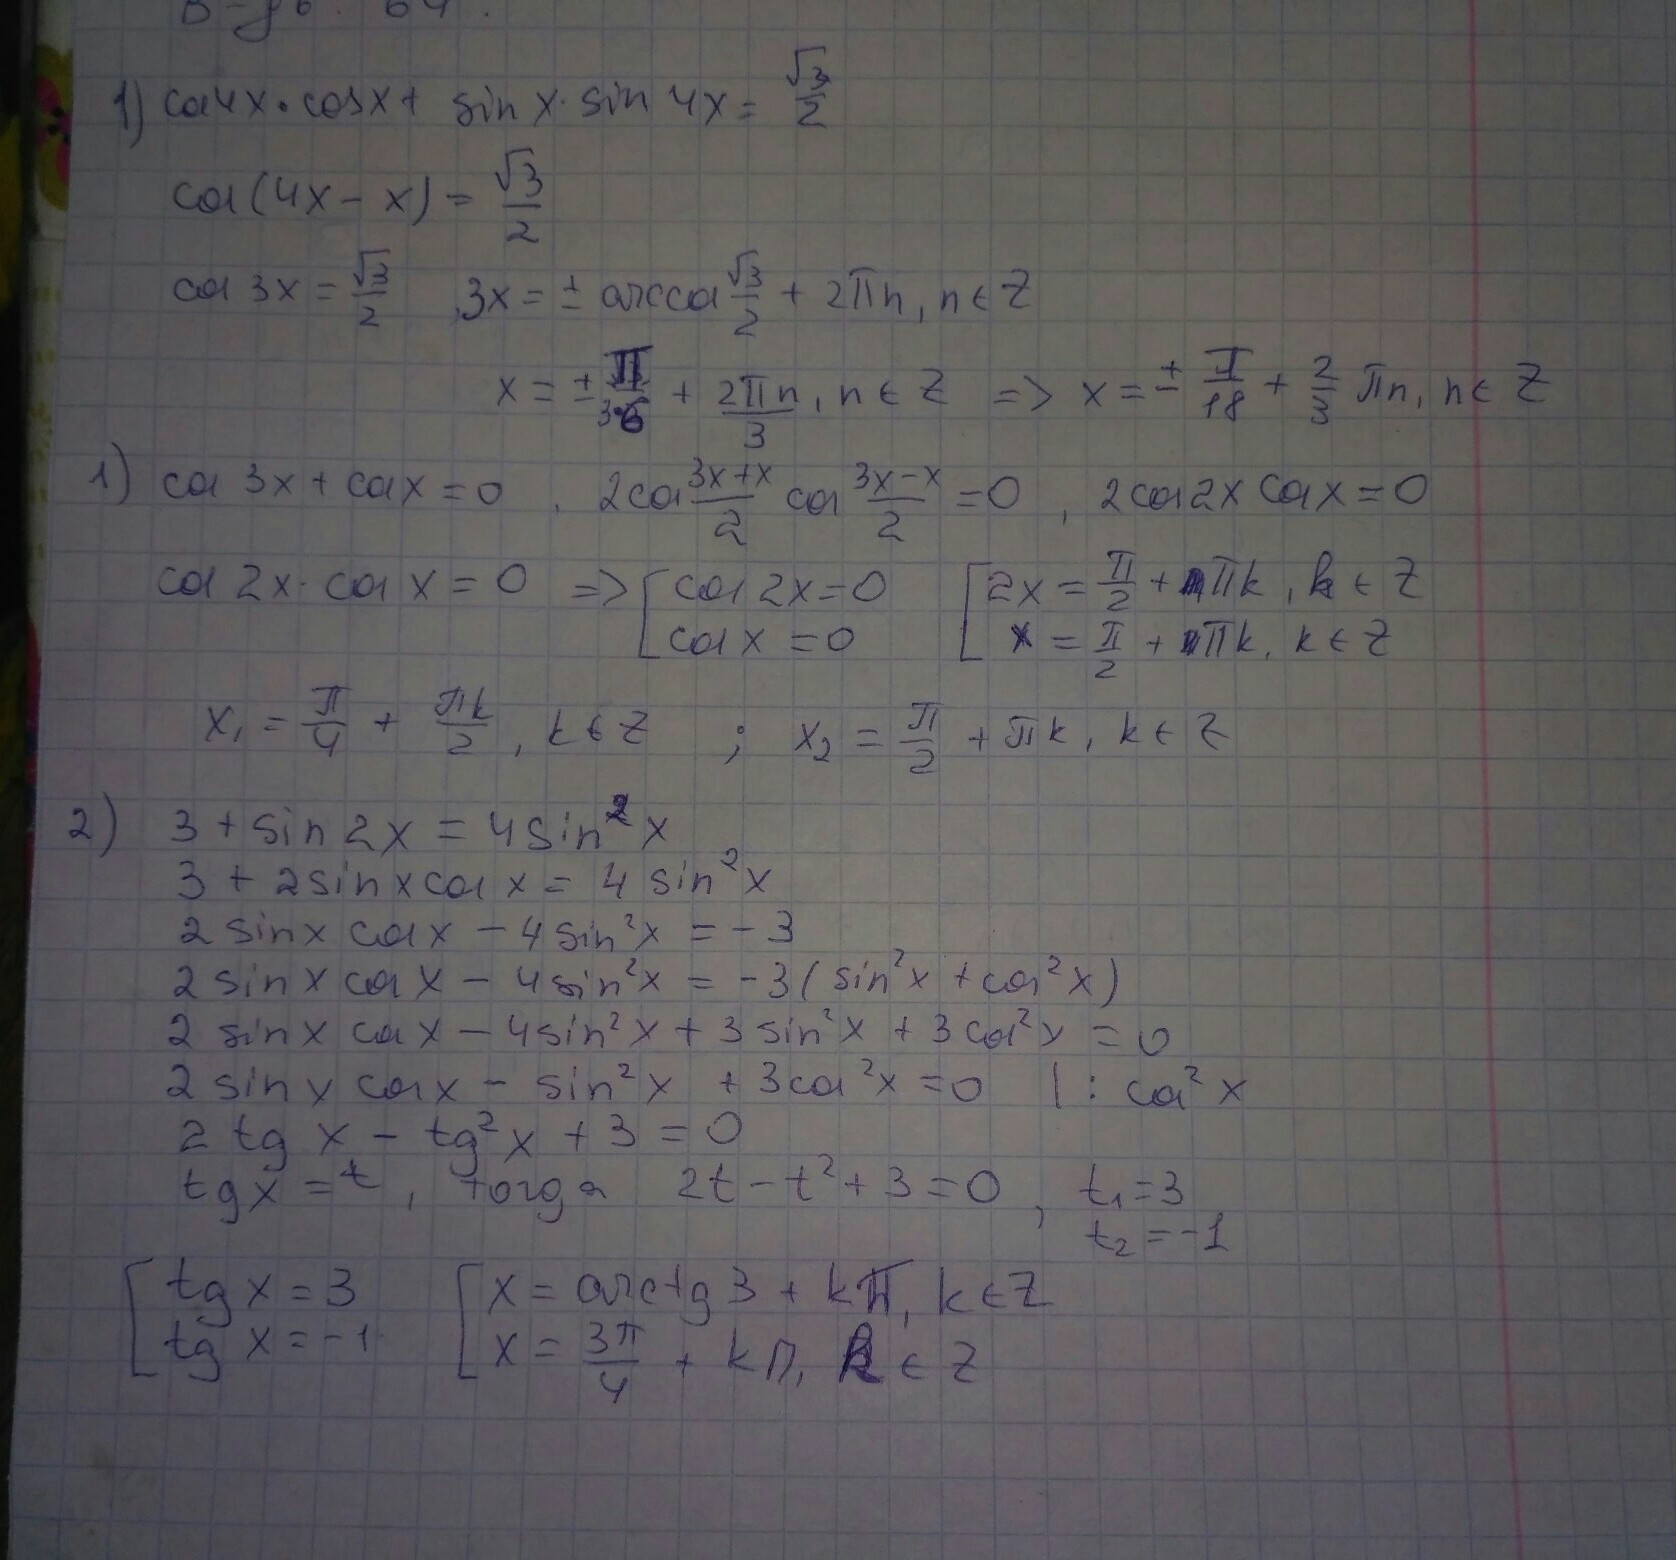 1) cos4x·cosx+ sin x· sin 4x = √3/2
cos(4x - x) = √3/2
cos 3x = √3/2 , 3x = ± arccos √3/2 + 2πn, n ∈ Z
x = ± π/3·6 + 2πn/3, n ∈ Z => x = ± π/18 + 2/3 πn, n ∈ Z
1) cos 3x + cos x = 0 , 2cos (3x+x)/2 cos (3x-x)/2 = 0 , 2cos2x cosx = 0
cos 2x· cos x = 0 => [ cos 2x = 0 [ 2x = π/2 + πk, k ∈ Z
cos x = 0 x = π/2 + πk, k ∈ Z
x₁ = π/4 + πk/2, k ∈ Z ; x₂ = π/2 + πk, k ∈ Z
2) 3 + sin 2x = 4 sin² x
3 + 2 sin x cos x = 4 sin² x
2 sin x cos x - 4 sin² x = -3
2 sin x cos x - 4 sin² x = -3 ( sin² x + cos² x)
2 sin x cos x - 4 sin² x + 3 sin² x + 3 cos² x = 0
2 sin x cos x - sin² x + 3 cos² x = 0 | : cos² x
2 tg x - tg² x + 3 = 0
tg x = t , тогда 2t - t² + 3 = 0 , t₁ = 3
t₂ = -1
[ tg x = 3 [ x = arctg 3 + kπ, k ∈ Z
tg x = -1 x = 3π/4 + kπ, k ∈ Z